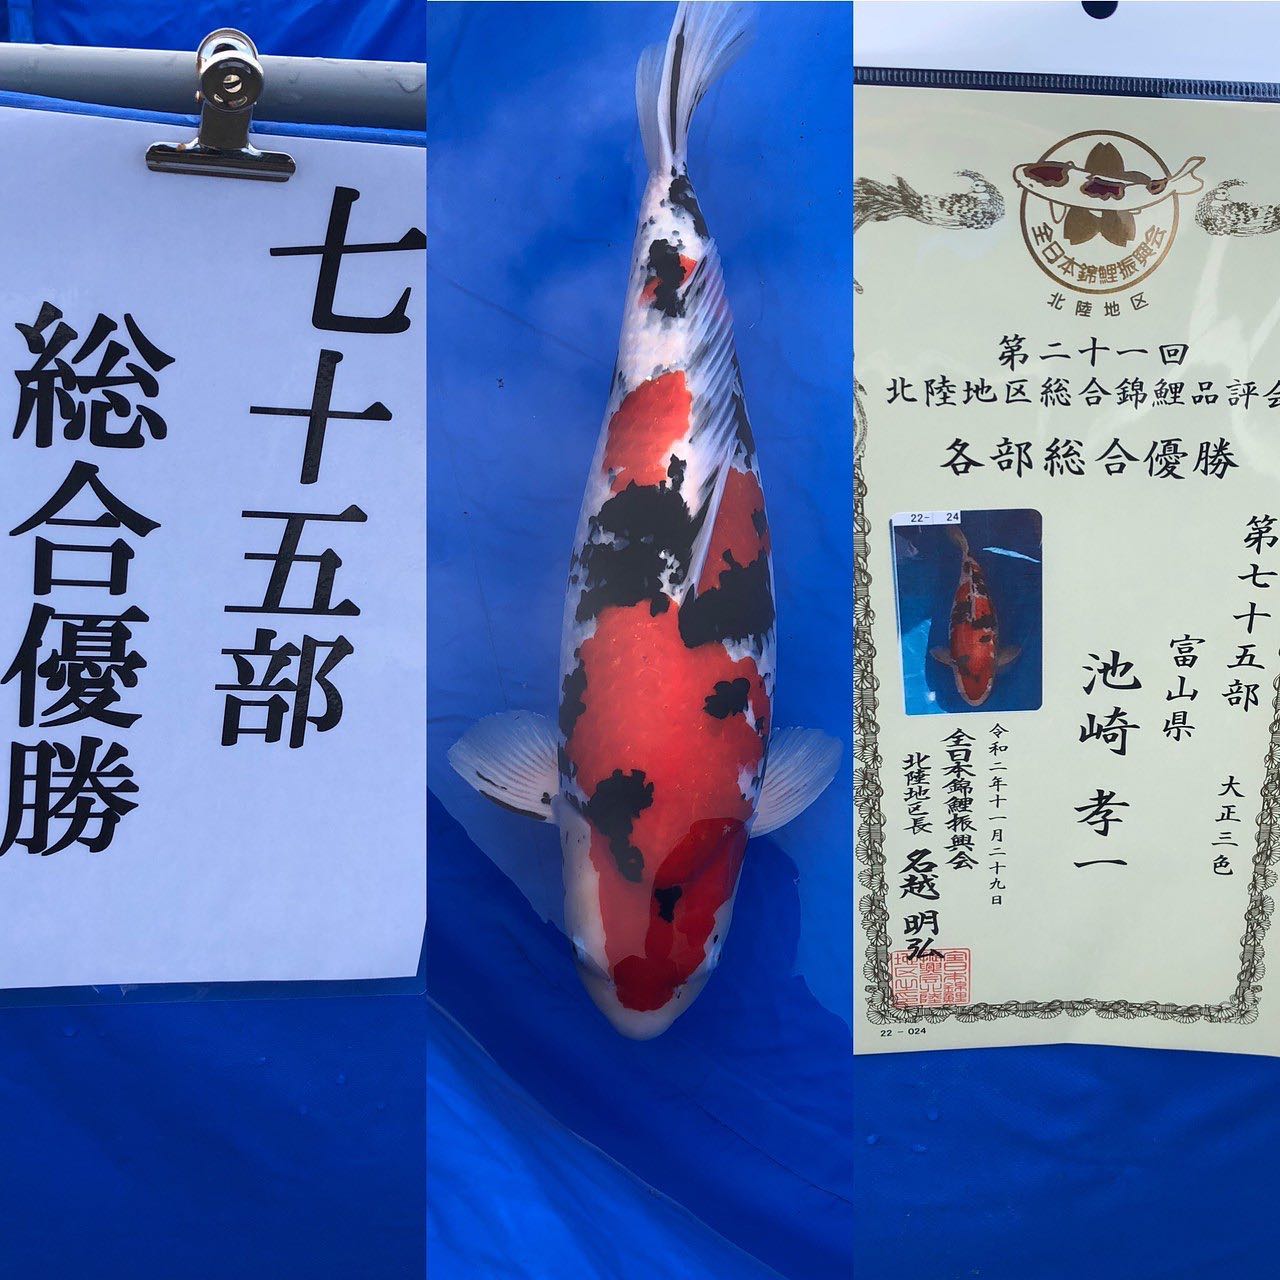 七十五部
総合優勝
全日本錦鯉振興会
北陸地区
第二十一回
北陸地区総合錦鯉品評会
各部総合優勝
22- 24
第七十五部
大正三色
富山県
池崎 孝一
令和二年十一月二十九日
全日本錦鯉振興会
北陸地区長 名越 明弘
22 - 024